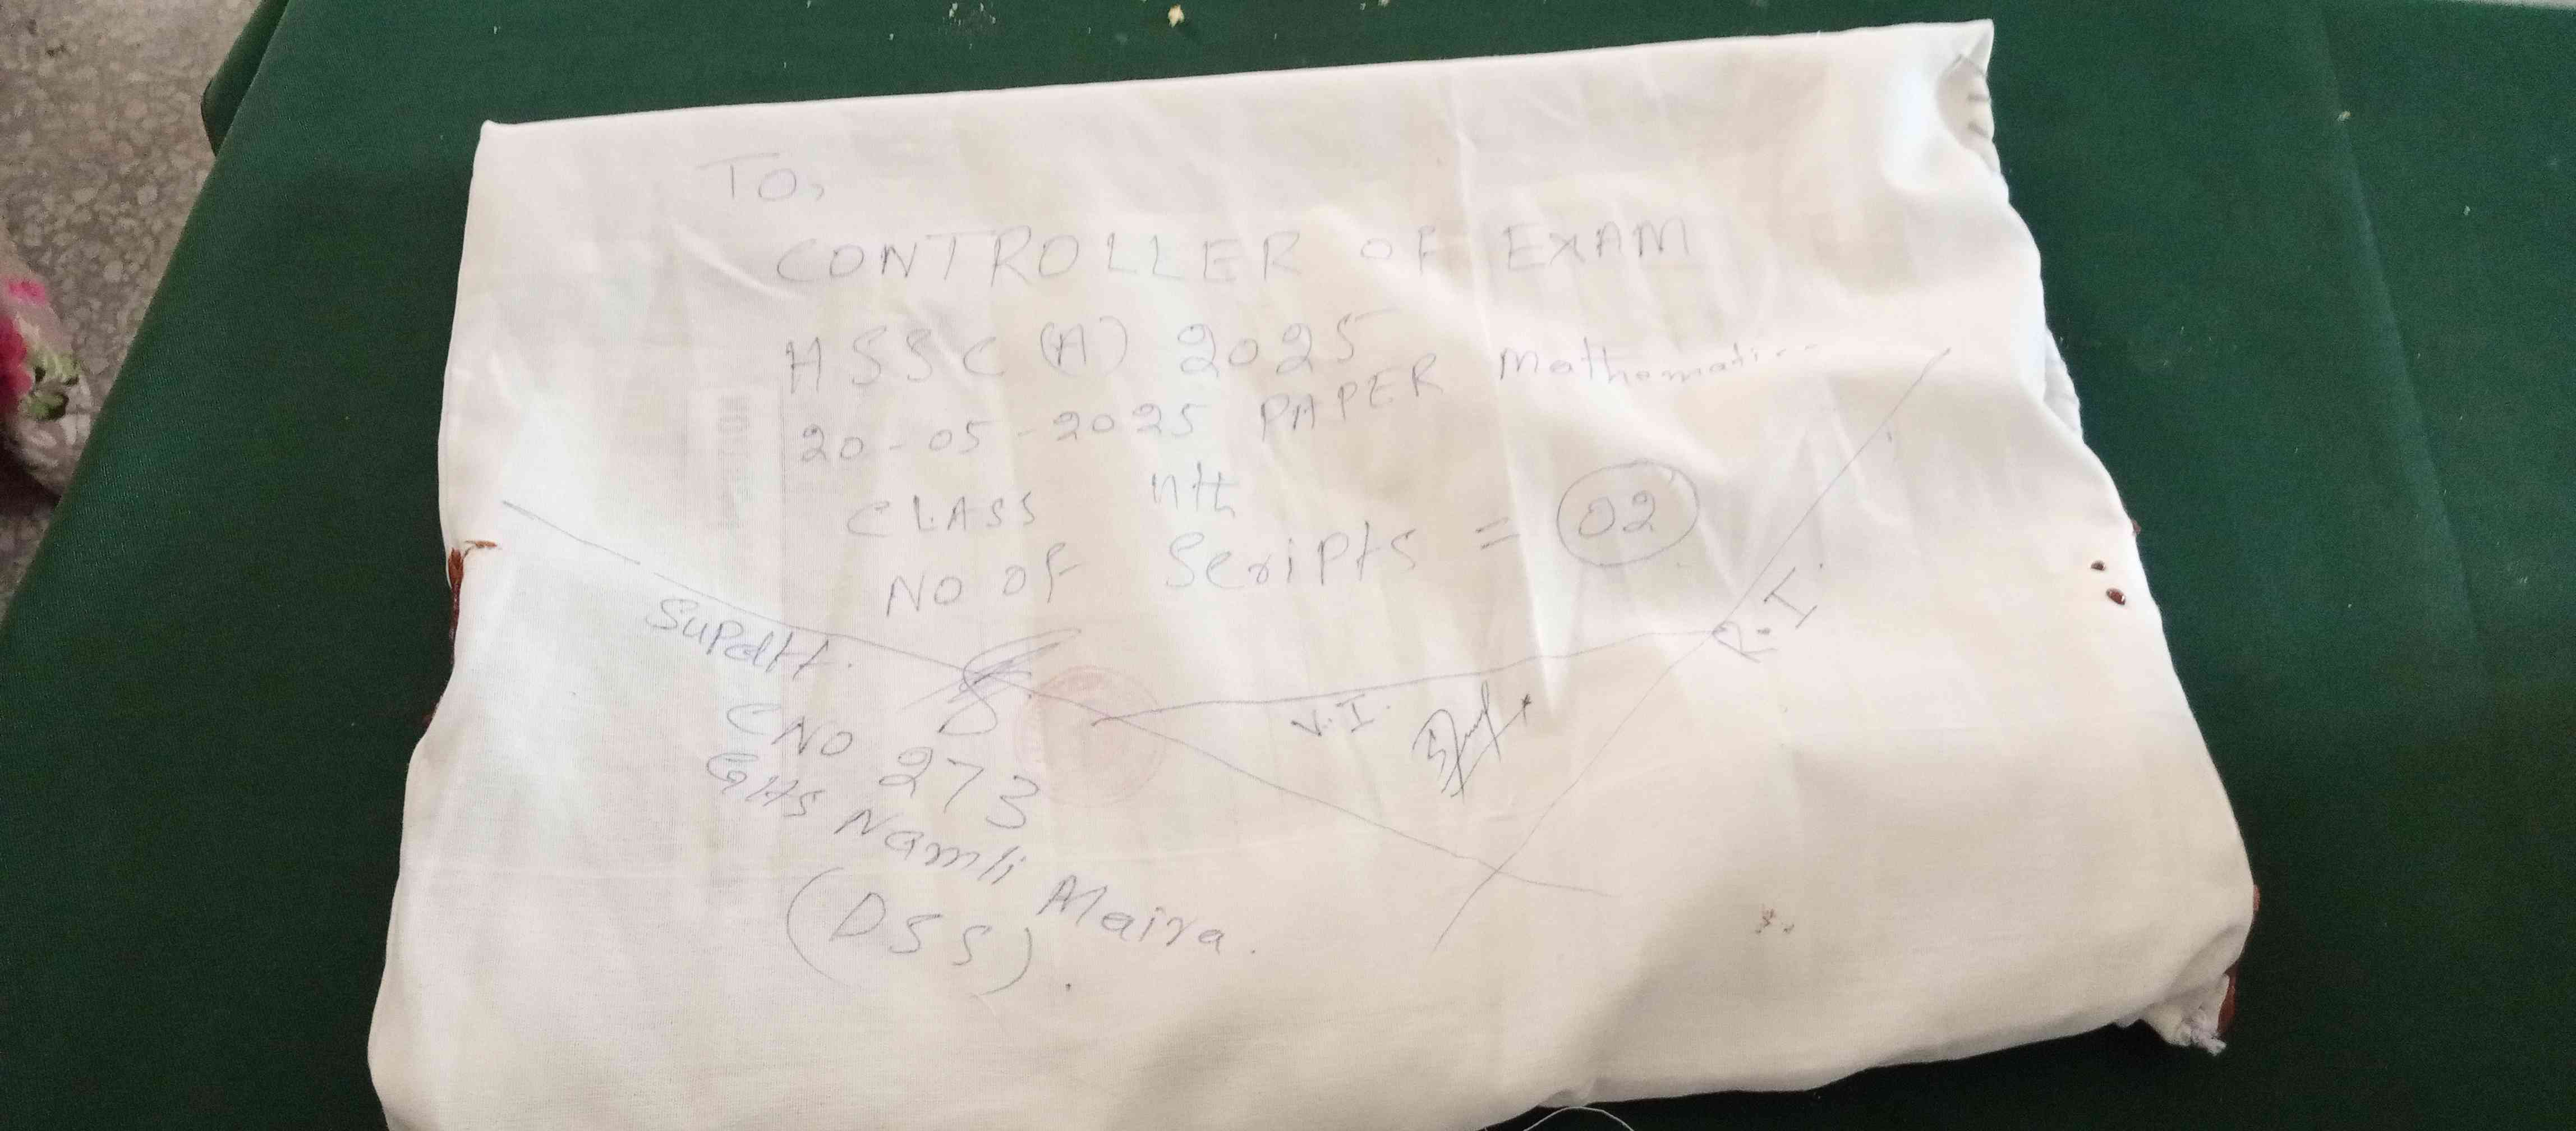 To,
CONTROLLER OF EXAM
HSSC (A) 2025
20-05-2025 PAPER Mathematics
CLASS 11th
NO OF Scripts = 02
Supdtt.
CNO 273
GHS Namli Maira.
(DSS).
V.I.
R.I.